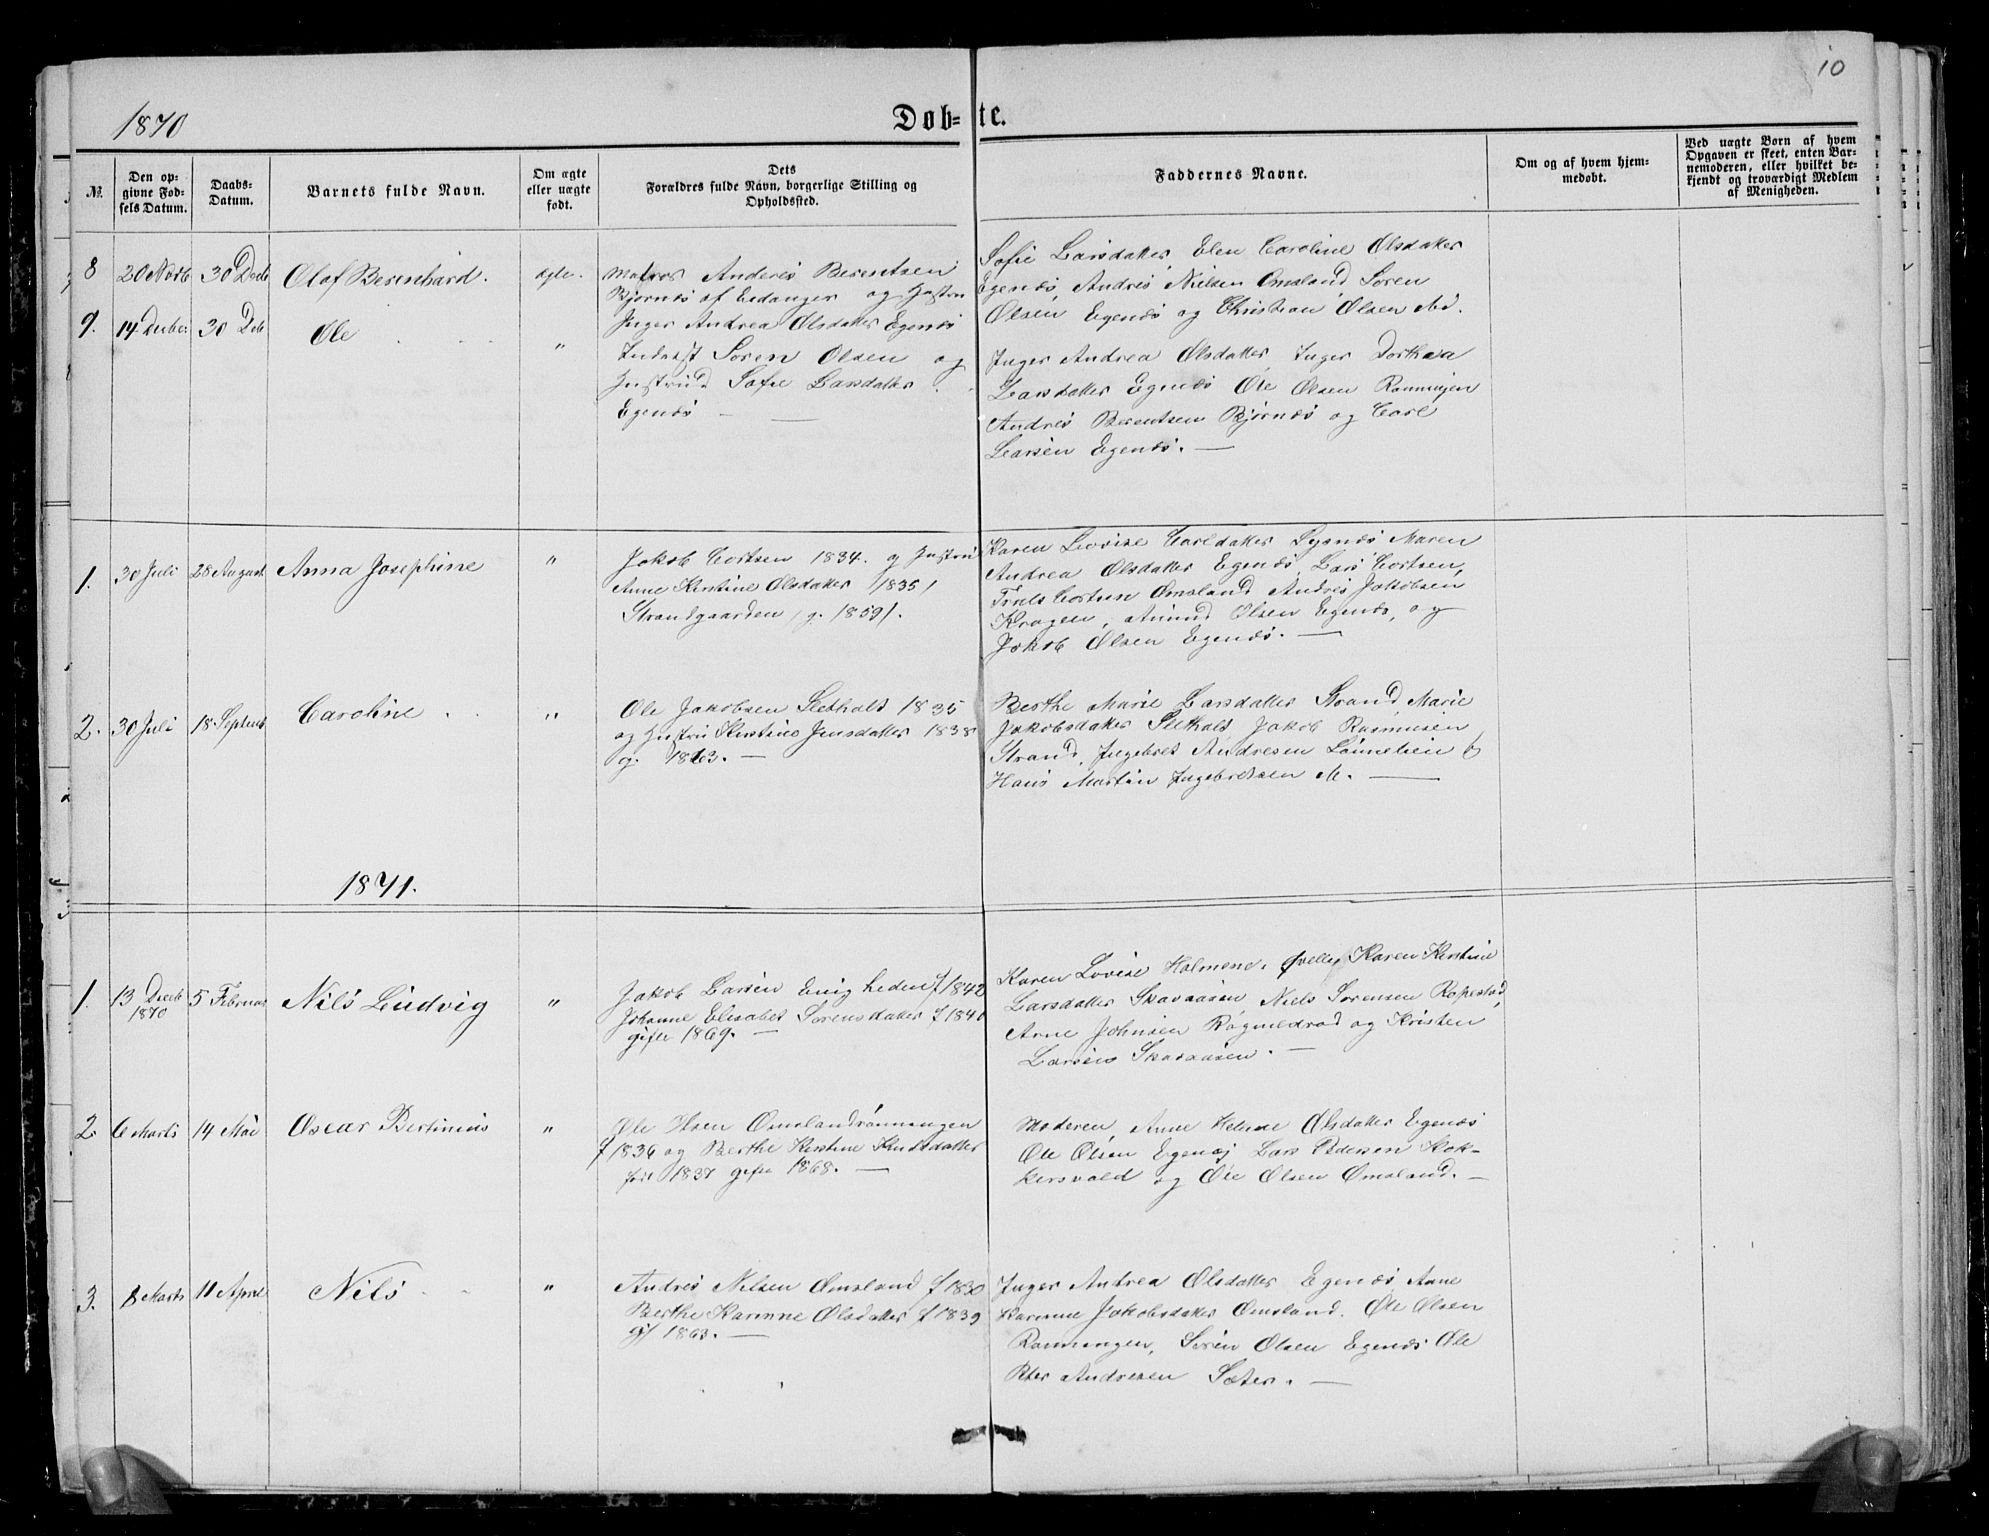 10
1870
Døb= te.
№
Den op-
givne Fød-
sels Datum.
Daabs-
Datum.
Barnets fulde Navn.
Om ægte
eller uægte
født.
Dets
Forældres fulde Navn, borgerlige Stilling og
Opholdssted.
Faddernes Navne.
Om og af hvem hjem-
medøbt.
Ved uægte Børn af hvem
Opgaven er skeet, enten Bar-
nemoderen, eller hvilket be-
kjendt og troværdigt Medlem
af Menigheden.
8 20 Novb 30 Decb Olaf Berenhard. ægte.
Matros Anderes Berentsen
Bjørnæs af Eidanger og Hustru
Inger Andrea Olsdatter Egenæs
Sofie Larsdatter, Elen Caroline Olsdatter
Egenæs, Andres Nielsen Omsland Søren
Olsen Egenæs og Christian Olsen ibd.
9. 14 Decber 30 Deb Ole "
Inderst Søren Olsen og
Hustrud Sofie Larsdatter
Egenæs —
Inger Andrea Olsdatter, Inger Dorthea
Larsdatter Egenæs Ole Olsen Rønningen
Andres Berentsen Bjørnæs og Carl
Larsen Egenæs. —
1. 30 Juli 28 August Anna Josephine "
Jakob Cortsen 1834. og Hustru
Anne Kirstine Olsdatter 1835,
Strandgaarden, g. 1859.
Karen Lovise Carldatter Maren
Andrea Olsdatter Egenæs, Lars Cortsen,
Troels Cortsen Omsland Andres Jakobsen
Kragen, Amund Olsen Egenæs, og
Jakob Olsen Egenæs. —
2. 30 Juli 18 Septemb Caroline "
Ole Jakobsen Slethalt 1835
og Hustru Kirstine Jensdatter 1838
g. 1863. —
Berthe Marie Larsdatter Strand Marie
Jakobsdatter Slethalt Jakob Rasmusen
Strand, Ingebret Andresen Lønnelien
Hans Martin Ingebretsen
1871.
1. 13 Decb 5 Februar Nils Ludvig "
1870
Jakob Larsen Enigheden f 1842
Johanne Elisabet Sørensdatter f 1840
gifte 1869. —
Karen Lovise Holmene. Karen Kirstine
Larsdatter Skavaasen Niels Sørensen Ropestad,
Arne Johnsen og Kristen
Larsen Skavaasen. —
2. 6 Marts 14 Mai Oscar Bertinius "
Ole Olsen Omslandrønningen
f 1836 og Berthe Kirstine Knudsdatter
født 1837 gifte 1868. —
Moderen, Anne Helene Olsdatter Egenæs
Ole Olsen Egenæs Lars Pedersen Kok-
kersvold og Ole Olsen Omsland. —
3. 8 Marts 11 April Nils "
Andres Nilsen Omsland f 1830
Berthe Karinne Olsdatter f 1839
gf 1863. —
Inger Andrea Olsdatter Egenæs Anne
Karinne Jakobsdatter Omsland. Ole Olsen
Rønningen, Søren Olsen Egenæs Ole
Peter Andresen Sæter. —